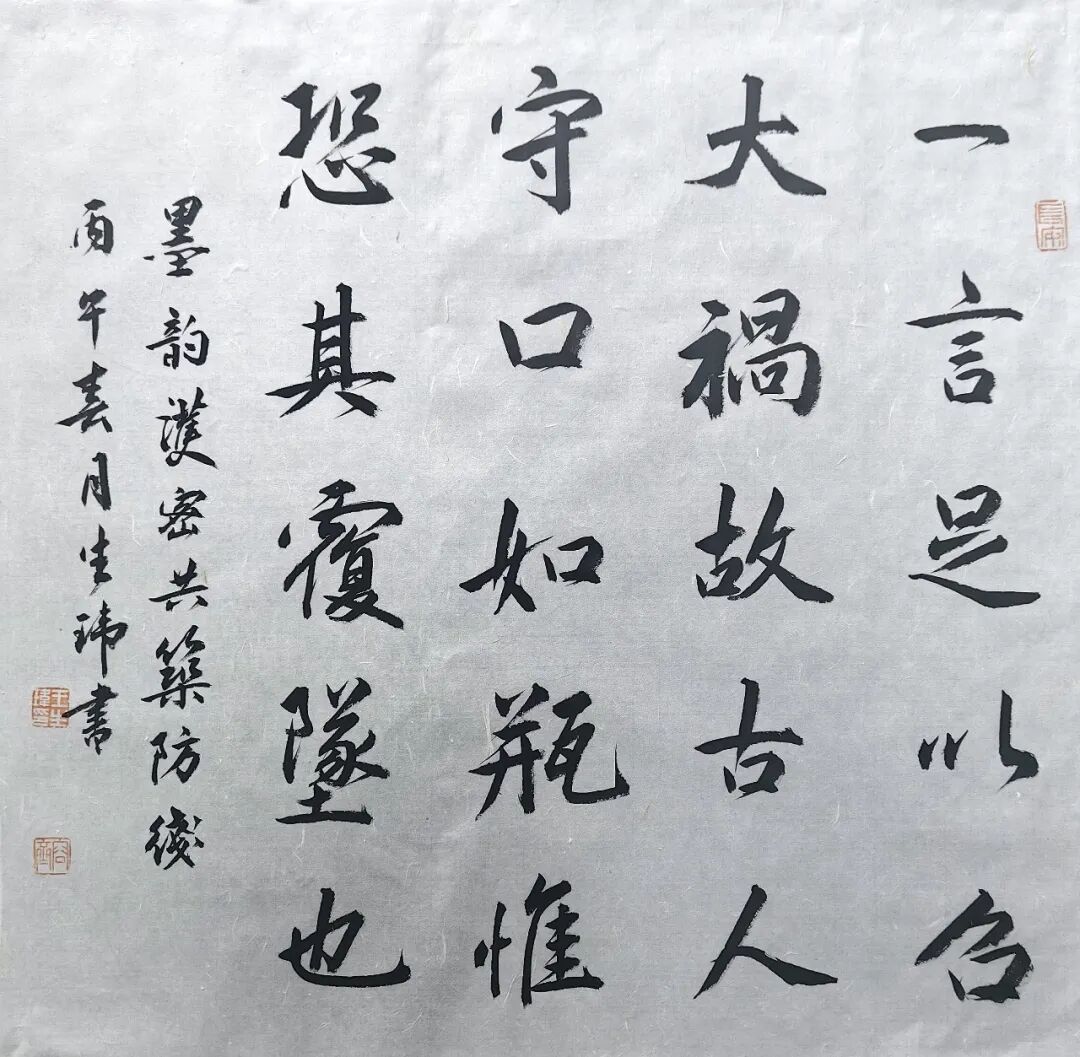 一言足以召
大禍故古人
守口如瓶惟
恐其覆墜也
墨韵護密共築防綫
丙午春月生瑋書